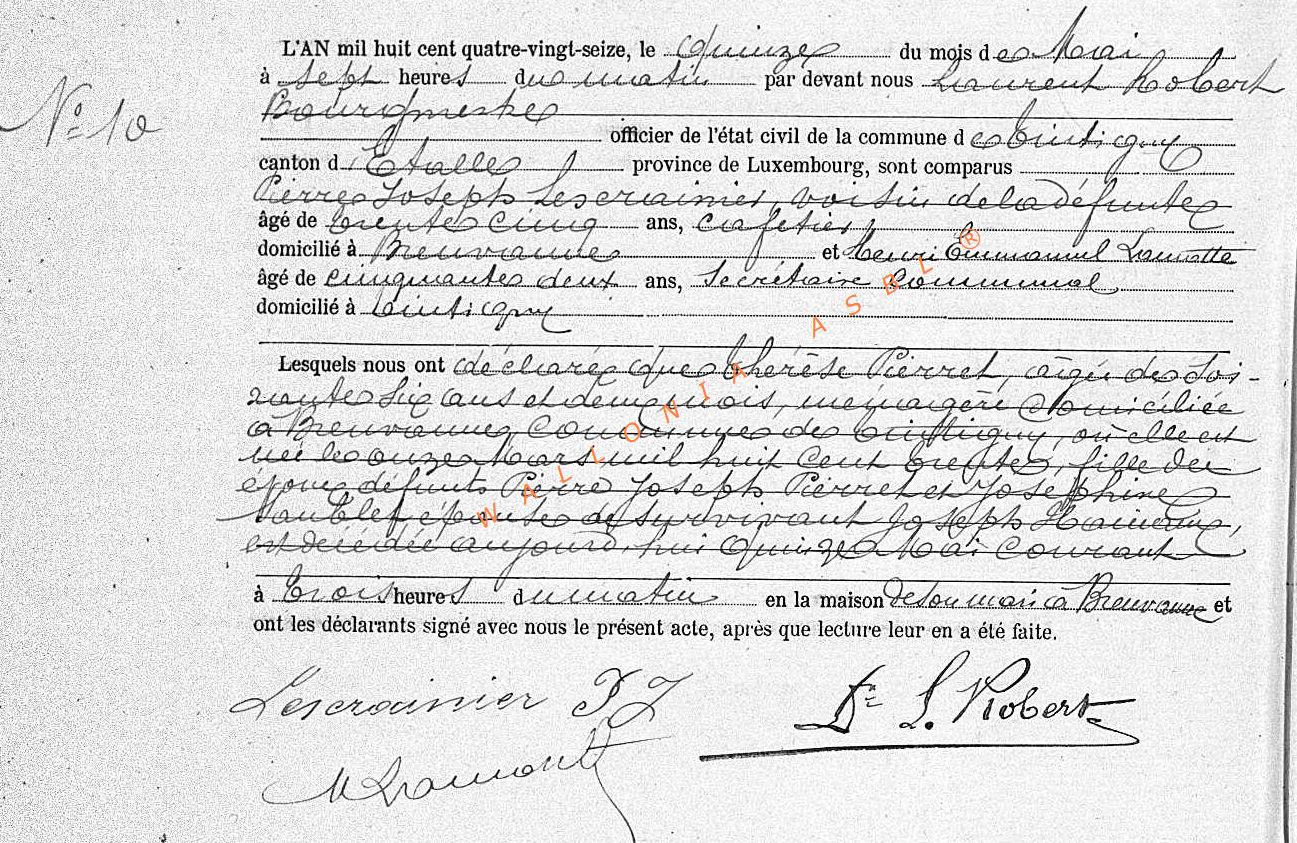 L'AN mil huit cent quatre-vingt-seize, le quinze du mois de Mai
à sept heures du matin par devant nous Laurent Robert
Nº 10
Bourgmestre
officier de l'état civil de la commune de Tintigny
canton d'Etalle province de Luxembourg, sont comparus
Pierre Joseph Lescrainier, voisin de la défunte
âgé de trente cinq ans, cafetier
domicilié à Breuvanne et Henri Emmanuel Lamotte
âgé de cinquante deux ans, Secrétaire Communal
domicilié à Tintigny
Lesquels nous ont déclaré que Thérèse Pierret, agée de soi-
xante six ans et deux mois, ménagère domiciliée
à Breuvanne, Commune de Tintigny, où elle est
née le onze Mars mil huit cent trente, fille des
époux défunts Pierre Joseph Pierret et Joséphine
épouse de survivant Joseph
est décédée aujourd'hui quinze Mai courant
à trois heures du matin en la maison de son mari à Breuvanne et
ont les déclarants signé avec nous le présent acte, après que lecture leur en a été faite.
Lescrainier P J
Dr L. Robert
WALLONIA ASBL ®